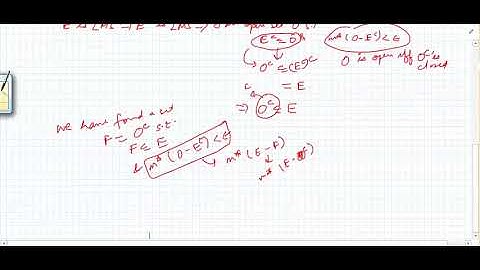 E is LMS → E^c is LMS → ∃ an open set O s.t.
E^c ⊆ O &
m*(O-E^c) < ε
O^c ⊆ (E^c)^c
O is open iff O^c is closed
= E
⇒ O^c ⊆ E
we have found a set
F = O^c s.t.
F ⊆ E
& m*(O-E^c) < ε
→ m*(E-F)
m*(E-O^c)